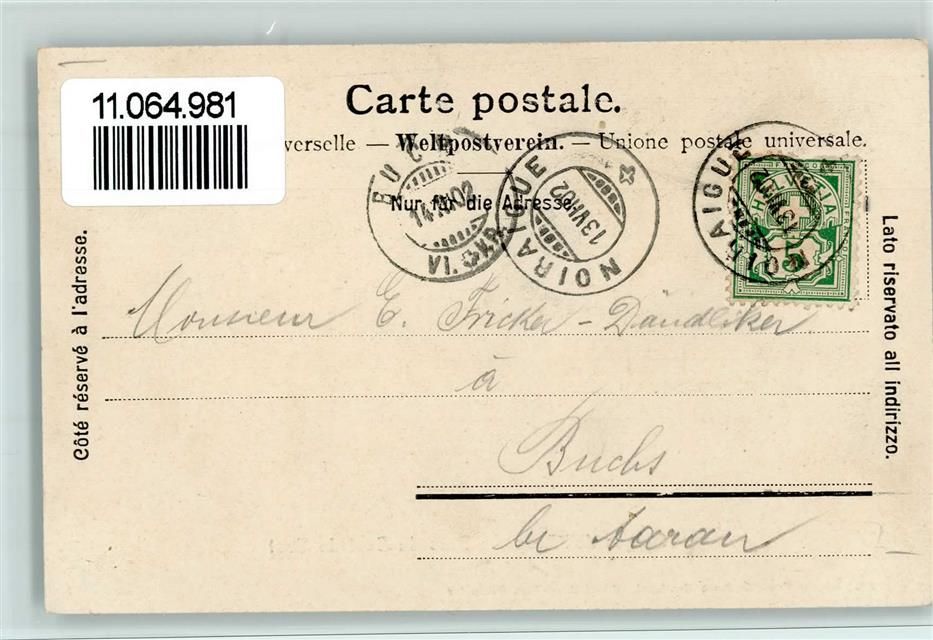 11.064.981
Carte postale.
verselle — Weltpostverein. — Unione postale universale.
Nur für die Adresse.
BUCHS
14.VII.02
NOIRAIGUE
13.VII.02
NOIRAIGUE
HELVETIA
FRANCO
5
Côté réservé à l'adresse.
Lato riservato all indirizzo.
Monsieur E. Fricker-Dändliker
à
Buchs
bei Aarau